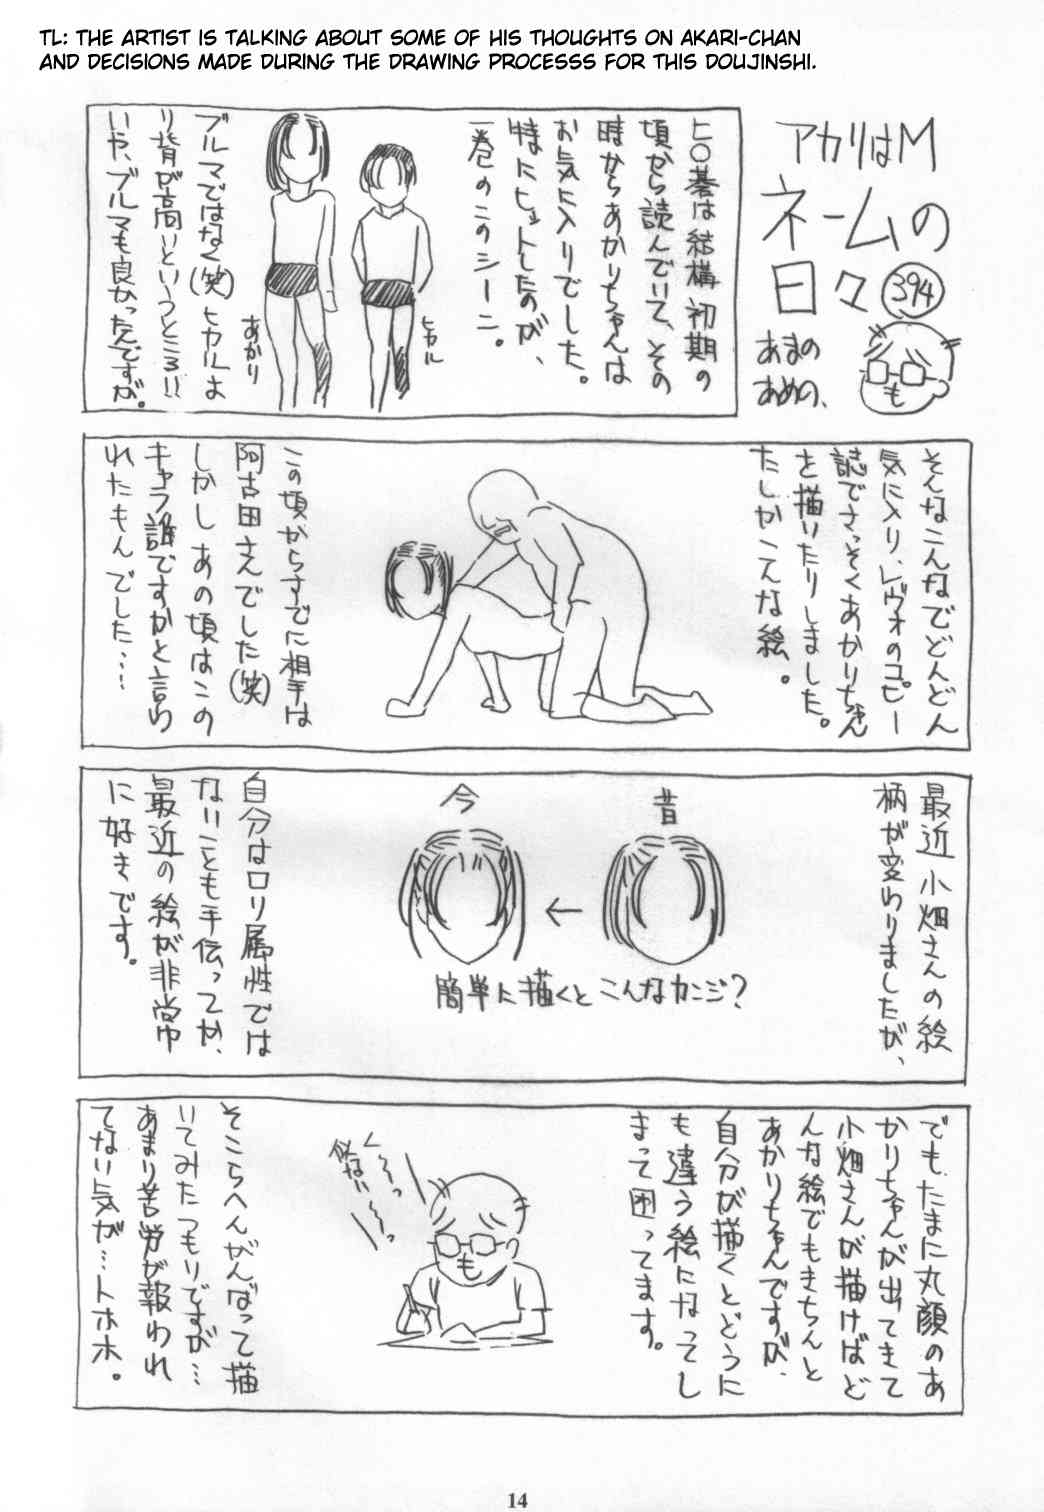 TL: THE ARTIST IS TALKING ABOUT SOME OF HIS THOUGHTS ON AKARI-CHAN
AND DECISIONS MADE DURING THE DRAWING PROCESSS FOR THIS DOUJINSHI.
アカリはM
ネームの
日々
394
あまの
あめの、
ヒ〇碁は結構初期の
頃から読んでいて、その
時からあかりちゃんは
お気に入りでした。
特にヒットしたのが、
一巻のこのシーン。
ヒカル
あかり
ブルマではなく(笑)ヒカルよ
り背が高いというところ!!
いや、ブルマも良かったんですが。
そんなこんなでどんどん
気に入り、レヴォのコピー
誌でさっそくあかりちゃん
を描いたりしました。
たしかこんな絵。
この頃からすでに相手は
阿古田さんでした(笑)
しかしあの頃はこの
キャラ誰ですかと言わ
れたもんでした…
最近小畑さんの絵
柄が変わりましたが、
昔
←
今
簡単に描くとこんなカンジ?
自分はロリ属性では
ないことも手伝ってか、
最近の絵が非常
に好きです。
でもたまに丸顔のあ
かりちゃんが出てきて
小畑さんが描けばど
んな絵でもきちんと
あかりちゃんですが、
自分が描くとどうに
も違う絵になってし
まって困ってます。
く〜〜っ
似ない〜〜
そこらへんがんばって描
いてみたつもりですが…
あまり苦労が報われ
てない気が…トホホ。
14